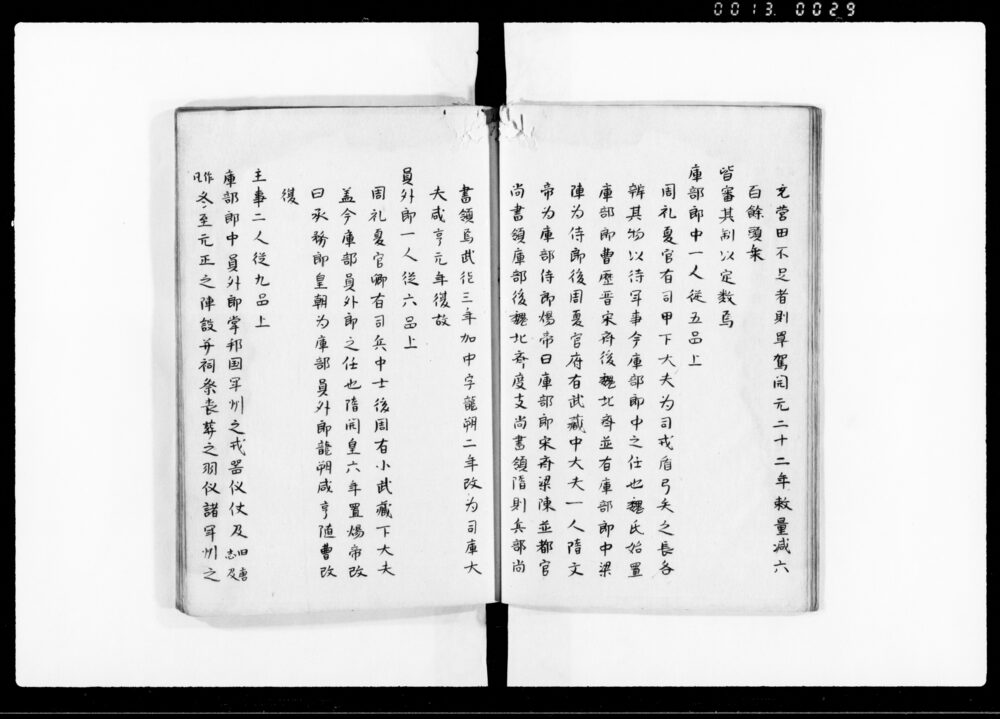 0013 0029
充营田不足者則單駕開元二十二年敕量減六
百餘頭乗
皆審其制以定数焉
庫部郎中一人從五品上
周礼夏官有司甲下大夫为司戎盾弓矢之長各
辨其物以待军事今庫部郎中之任也魏氏始置
庫部郎曹歷晋宋齐後魏北齐並有庫部郎中梁
陳为侍郎後周夏官府有武藏中大夫一人隋文
帝为庫部侍郎煬帝曰庫部郎宋齐梁陳並都官
尚書領庫部後魏北齐度支尚書領隋則兵部尚
書領焉武徳三年加中字龍朔二年改为司庫大
夫咸亨元年復故
員外郎一人從六品上
周礼夏官卿有司兵中士後周有小武藏下大夫
盖今庫部員外郎之任也隋開皇六年置煬帝改
曰承務郎皇朝为庫部員外郎龍朔咸亨随曹改
復
主事二人從九品上
庫部郎中員外郎掌邦国军州之戎器仪仗及旧唐志及
作凡冬至元正之陣設并祠祭喪葬之羽仪諸军州之